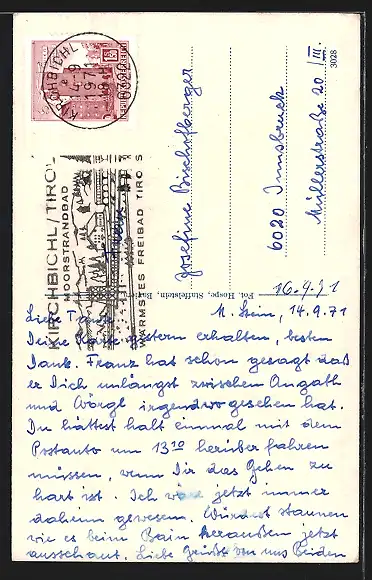 KIRCHBICHL
-9
1971
6322
REPUBLIK
KIRCHBICHL/TIROL
MOORSTRANDBAD
WÄRMSTES FREIBAD TIROLS
Josefine Bischofberger
6020 Innsbruck
Müllerstraße 20/III.
3028
Fot. Hospe, Staffelstein,
16.9.71
Liebe M. Stein, 14.9.71
Deine Karte gestern erhalten, besten
Dank. Franz hat schon gesagt daß
er Dich unlängst zwischen Angath
und Wörgl irgendwo gesehen hat.
Du hättest halt einmal mit dem
Postauto um 13 10 herüber fahren
müssen, wenn Dir das Gehen zu
hart ist. Ich wäre jetzt immer
daheim gewesen. Würdest staunen
wie es beim Bain heraußen jetzt
ausschaut. Liebe Grüße von uns Beiden